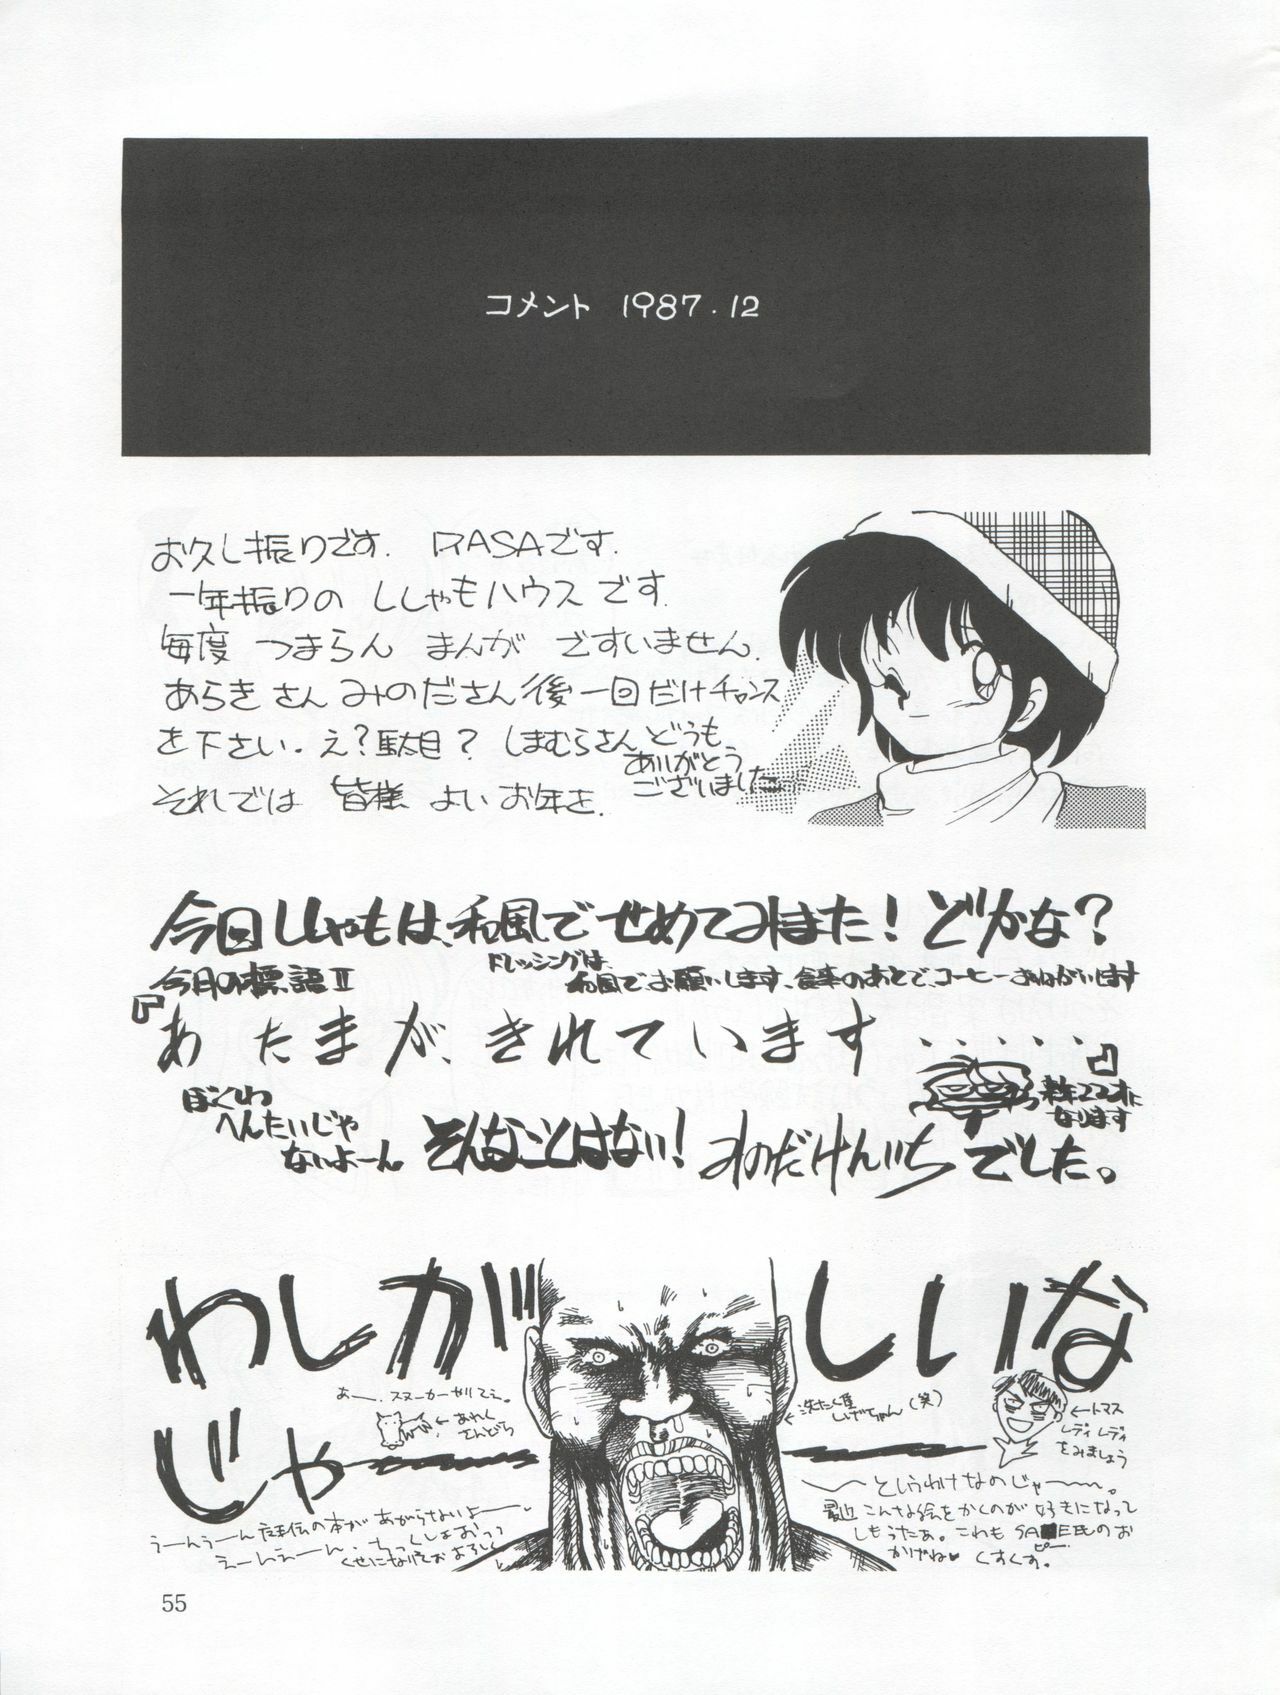 コメント 1987.12
お久し振りです. RASAです.
一年振りの ししゃもハウス です.
毎度 つまらん まんが ですいません.
あらきさん みのださん 後一回だけチャンス
を下さい. え?駄目? しまむらさん どうも
ありがとう
ございました
それでは 皆様 よい お年を.
今回ししゃもは、和風でせめてみました! どかな?
今月の標語Ⅱ
ドレッシングは、
和風で、お願いします、食事のあとで、コーヒーおねがいします
『あたまが、きれています・・・・・・』
ぼくしわ
へんたいじゃ
ないよーん
来年22才に
なります
そんなことはない! みのだけんいちでした。
わしが しいな
じゃ
あー、スヌーカーやりてぇ。
←あれく
さんどら
←洗たく屋
しげちゃん(笑)
←トマス
レディ レディ
をみましょう
〜〜というわけなのじゃ〜〜。
最近こんな絵をかくのが 好きになって
しもうたあ。これも SA EE氏のお
ピー
かげね♥ くすくす。
うーんうーん の本が あがらないよー
えーんえーん.ちっくしょおっっ
55